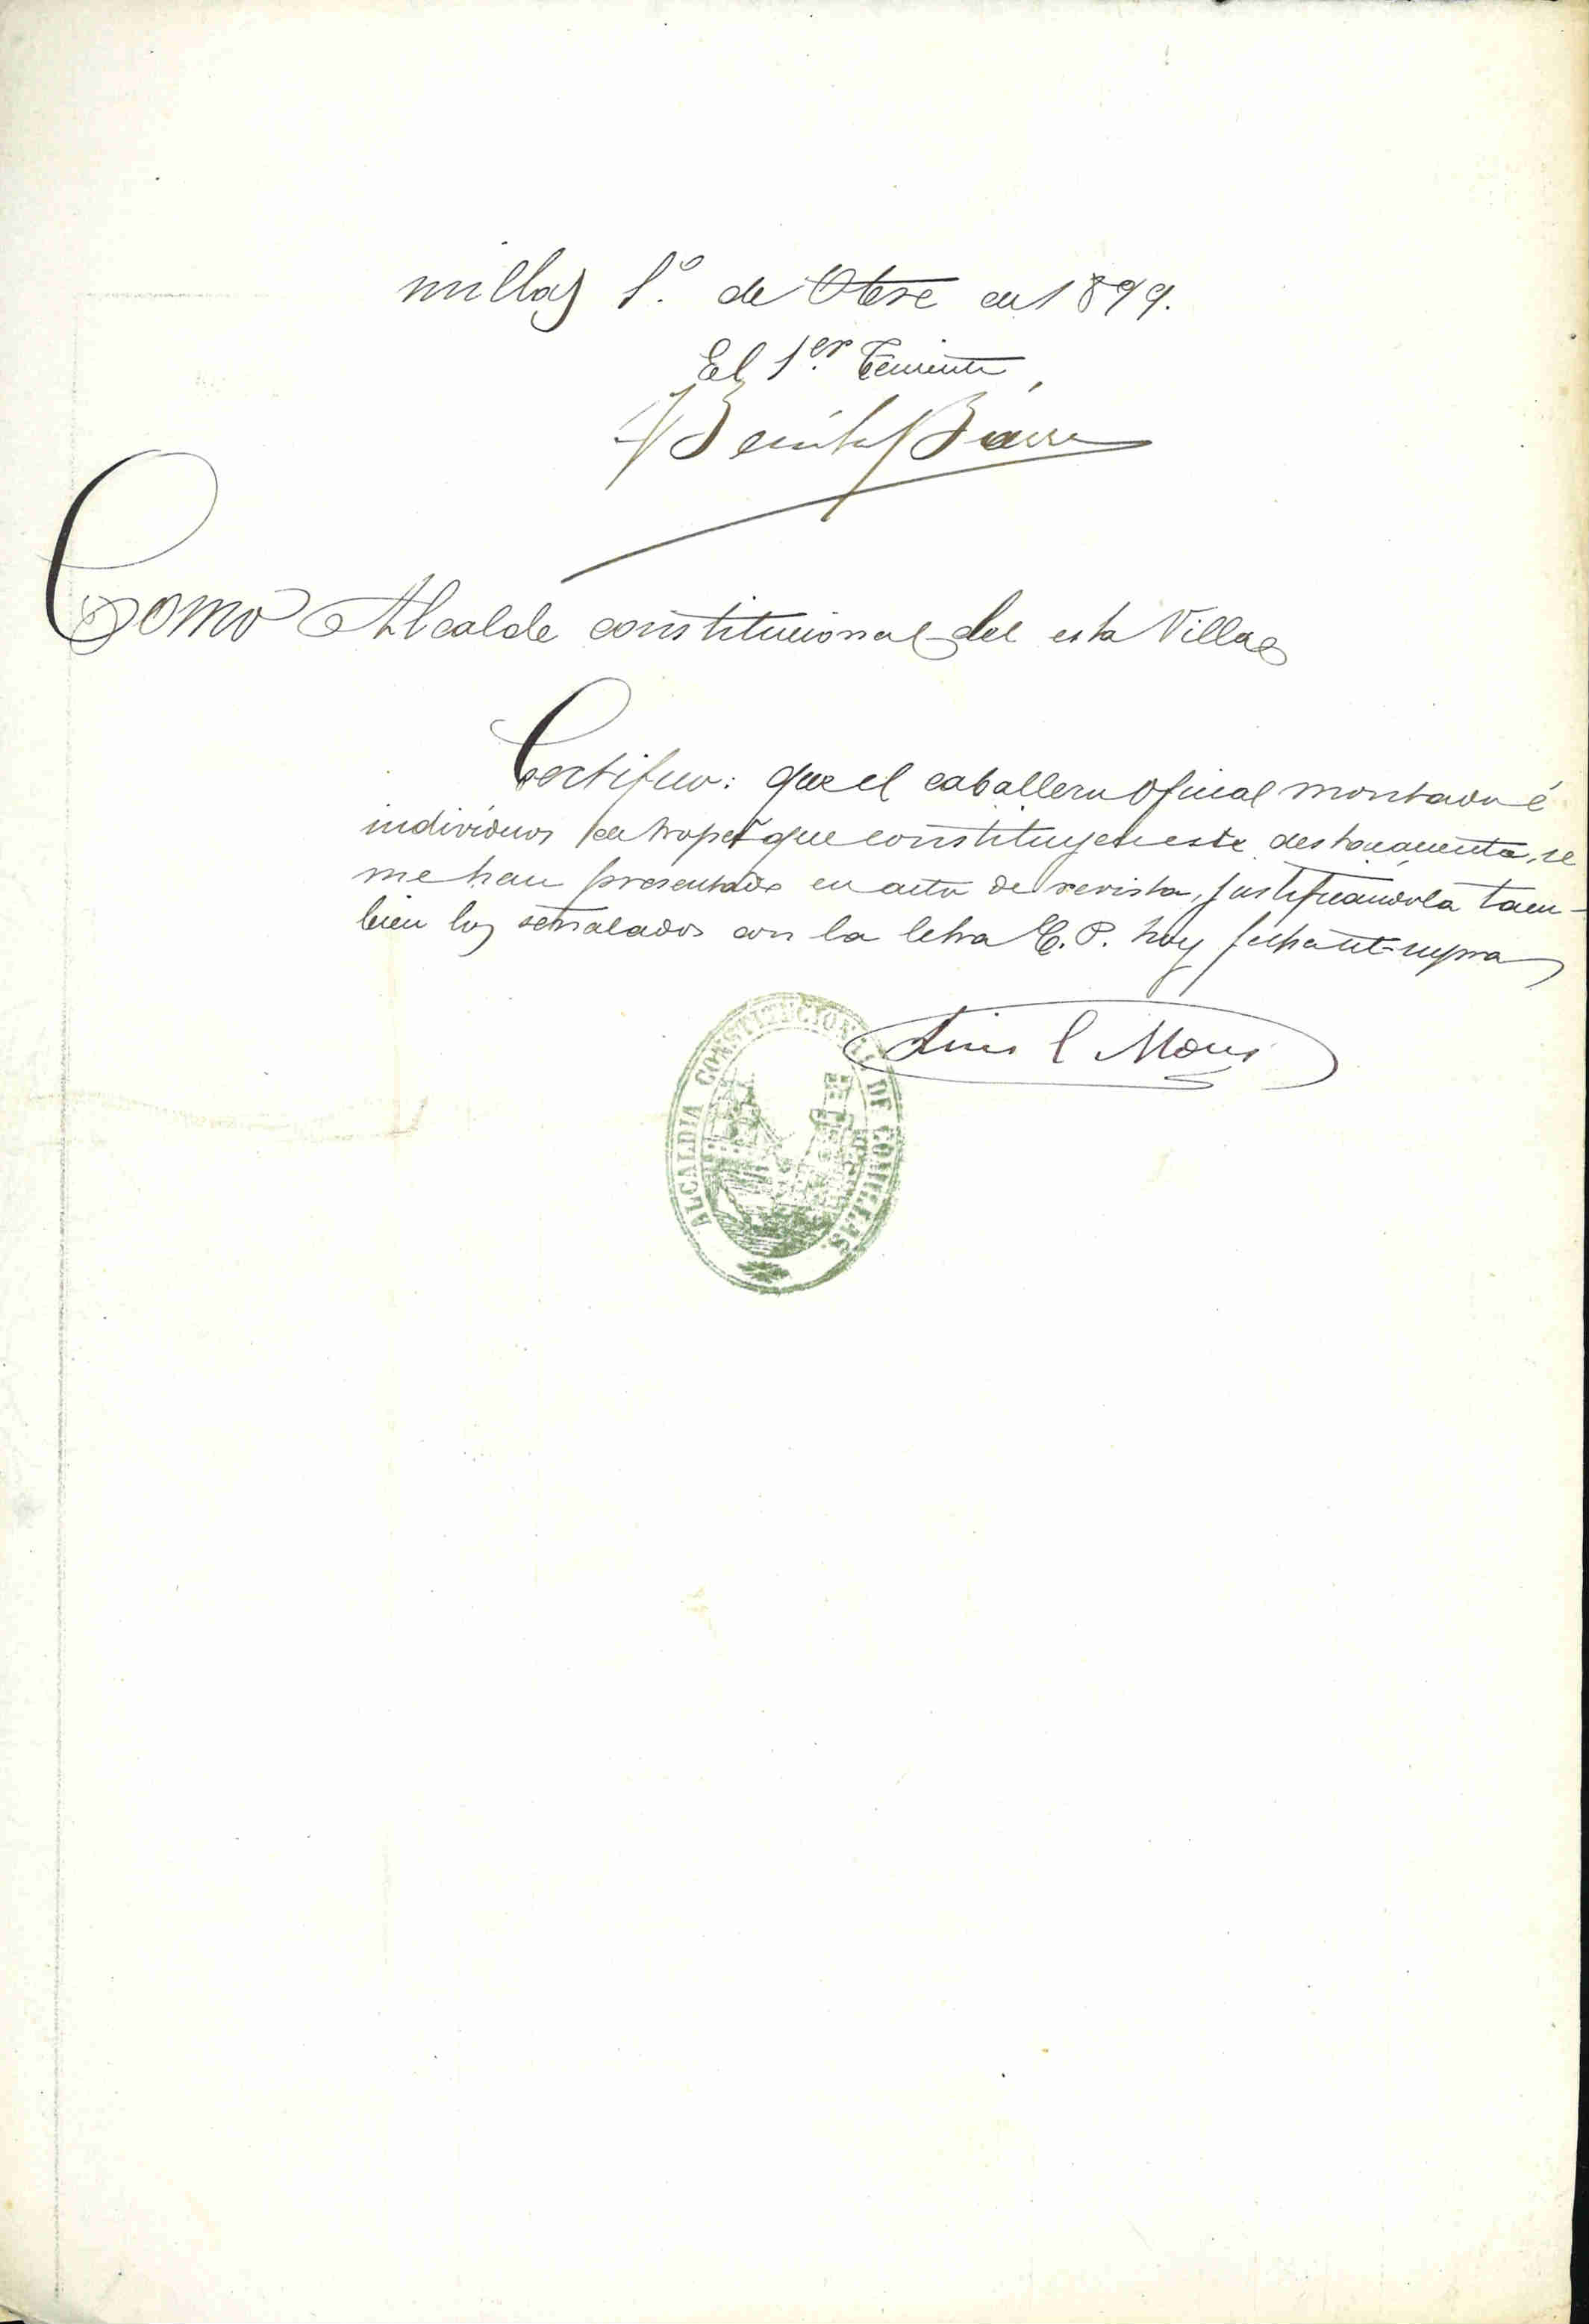 millas 1.º de Otbre de 1899.
El 1.er Teniente,
Benito
Como Alcalde constitucional de esta Villa
Certifico: que el caballero Oficial montado é
individuos de tropa que constituyen este destacamento, se
me han presentado en acto de revista, justificandola tam-
bien los señalados con la letra C.P. hoy fecha ut-supra
Luis
ALCALDIA CONSTITUCIONAL DE COMILLAS.